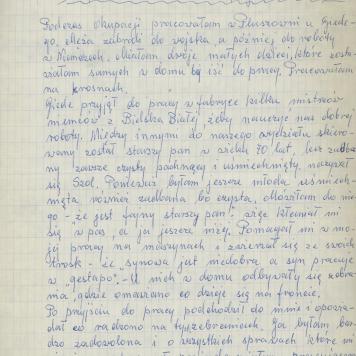 Podczas okupacji pracowałam w Pluszowni u Giede-
go, Męża zabrali do wojska a później do roboty
w Niemczech. Miałam dwoje małych dzieci, które zosta-
wiałam samych w domu by iść do pracy. Pracowałam
na krosnach.
Giede przyjął do pracy w fabryce kilku mistrzów
niemców z Bielska Białej żeby nauczyć nas dobrej
roboty. Między innymi do naszego wydziału skiero-
wany został starszy pan w wieku 70 lat, lecz zadba-
ny zawsze czysty pachnący i uśmiechnięty nazywał
się Szol. Ponieważ byłam jeszcze młoda uśmiech-
nięta również zadbana bo czysta. Mówiłam do nie-
go - że jest fajny starszy pan -, więc kłaniał mi
się w pas, a ja jeszcze niżej. Pomagał mi w mo-
jej pracy na maszynach i zwierzał się ze swoich
trosk - że "synowa jest niedobra, a syn pracuje
w "gestapo". - U nich w domu odbywały się zebra-
nia, gdzie omawiano co dzieje się na froncie.
Po przyjściu do pracy podchodził do mnie i opowia-
dał co radzono na tych zebraniach. Ja byłam bar-
dzo zadowolona i o wszystkich sprawach które mi